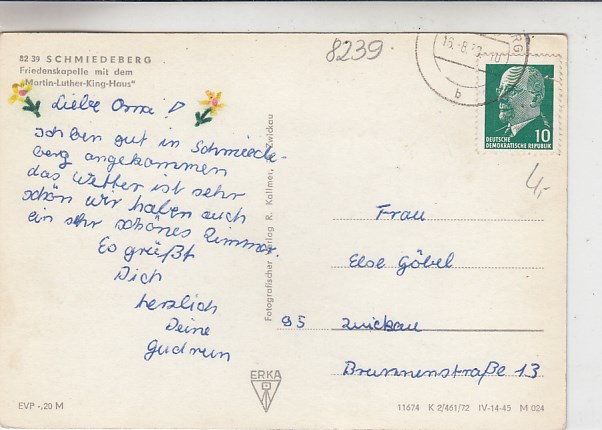 8239.
82 39 SCHMIEDEBERG
Friedenskapelle mit dem
"Martin-Luther-King-Haus"
Liebe Omi!
ich bin gut in Schmiede-
berg angekommen
das Wetter ist sehr
schön wir haben auch
ein sehr schönes Zimmer.
Es grüßt
Dich
herzlich
Deine
Gudrun
Fotografischer Verlag R. Kallmer, Zwickau
DEUTSCHE
DEMOKRATISCHE REPUBLIK
10
b
4,-
Frau
Else Göbel
95 Zwickau
Brunnenstraße 13
ERKA
EVP -,20 M
11674 K 2/461/72 IV-14-45 M 024